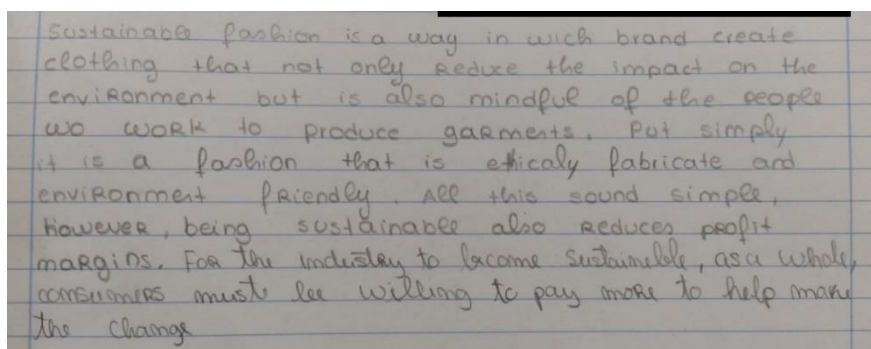 Sustainable fashion is a way in wich brand create
clothing that not only Reduce the impact on the
enviRonment but is also mindful of the people
wo woRk to produce gaRments. Put simply
it is a fashion that is ethicaly fabricate and
enviRonment fRiendly. All this sound simple,
HoweveR, being sustainable also Reduces profit
maRgins. FoR the industRy to become sustainable, as a whole,
consumeRs must be willing to pay moRe to help make
the change